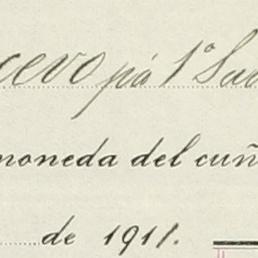 cevo pá 1º Sa
moneda del cuñ
de 1911.